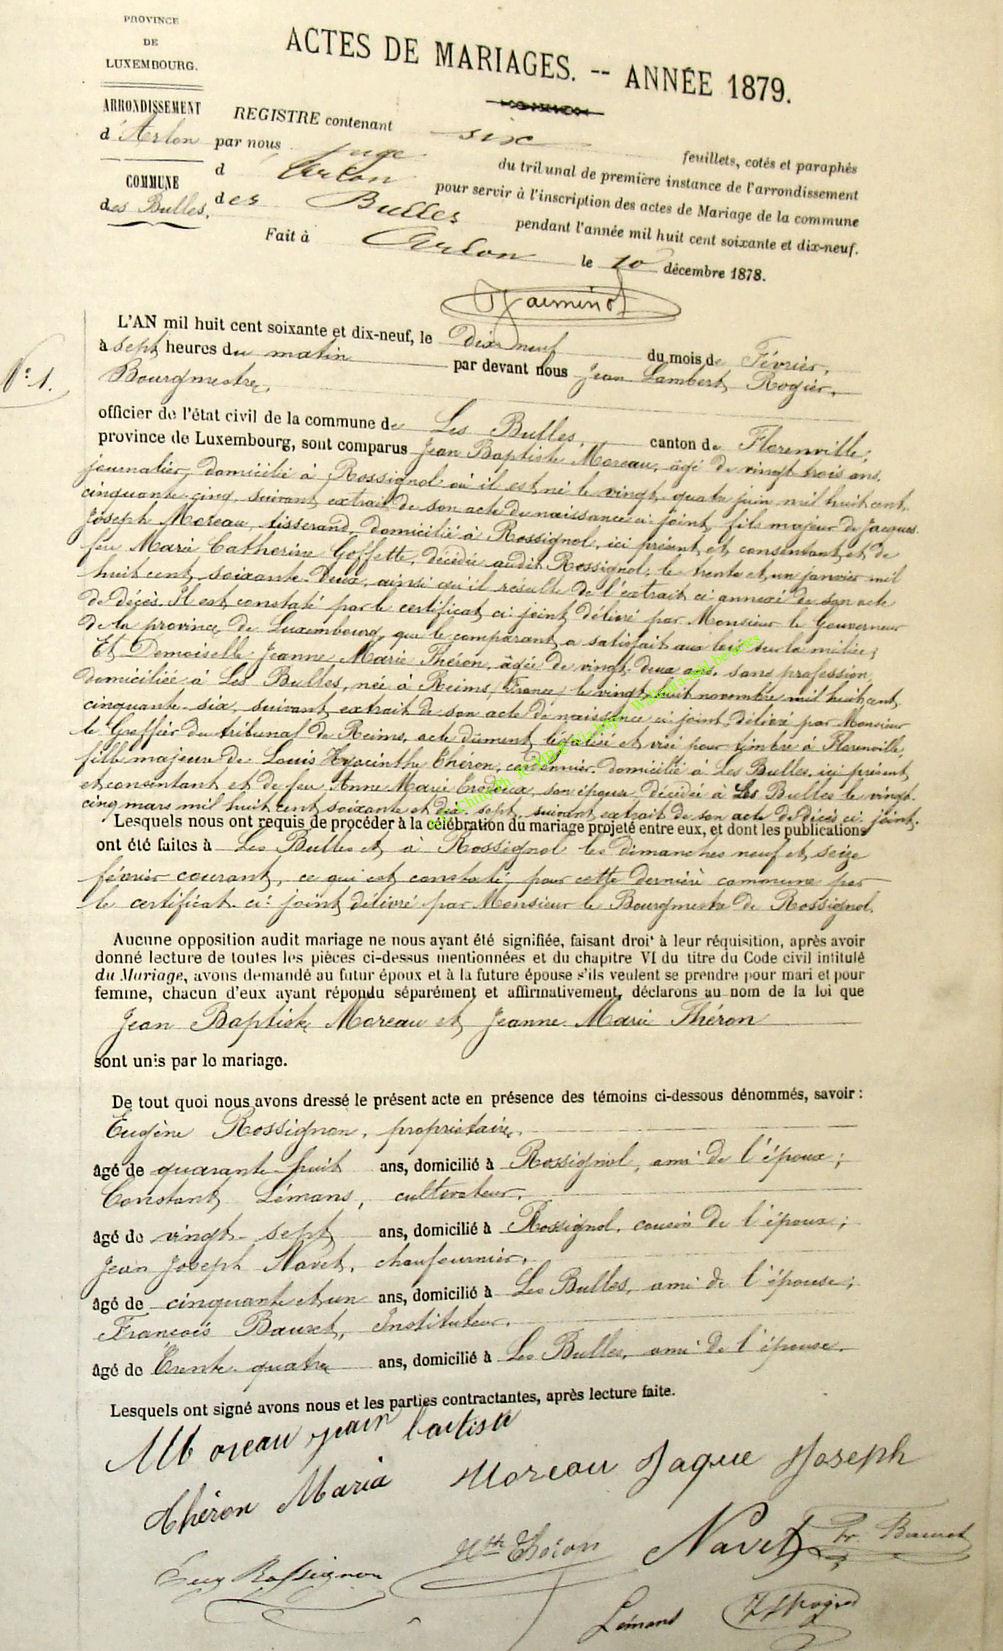 PROVINCE
DE
LUXEMBOURG.
ARRONDISSEMENT
d'Arlon
COMMUNE
des Bulles.
ACTES DE MARIAGES. -- ANNÉE 1879.
REGISTRE contenant six feuillets, cotés et paraphés
par nous juge du tribunal de première instance de l'arrondissement
d'Arlon pour servir à l'inscription des actes de Mariage de la commune
des Bulles pendant l'année mil huit cent soixante et dix-neuf.
Fait à Arlon le 10 décembre 1878.
N° 1.
L'AN mil huit cent soixante et dix-neuf, le dix neuf du mois de Février,
à sept heures du matin par devant nous Jean Lambert Rogier,
Bourgmestre,
officier de l'état civil de la commune de Les Bulles, canton de Florenville,
province de Luxembourg, sont comparus Jean Baptiste Moreau, âgé de vingt trois ans,
journalier, domicilié à Rossignol où il est né le vingt-quatre juin mil huit cent
cinquante-cinq, suivant extrait de son acte de naissance ci-joint, fils majeur de Jacques
Joseph Moreau, tisserand, domicilié à Rossignol, ici présent et consentant et de
feu Marie Catherine Goffette, décédée audit Rossignol, le trente et un janvier mil
huit cent soixante-deux, ainsi qu'il résulte de l'extrait ci annexé de son acte
de décès. Il est constaté par le certificat ci joint délivré par Monsieur le Gouverneur
de la province de Luxembourg, que le comparant a satisfait aux lois sur la milice;
Et Demoiselle Jeanne Marie Théron, âgée de vingt-deux ans, sans profession,
domiciliée à Les Bulles, née à Reims, (France) le vingt huit novembre mil huit cent
cinquante-six, suivant extrait de son acte de naissance ci joint, délivré par Monsieur
le Greffier du tribunal de Reims, acte dûment légalisé et visé pour timbre à Florenville,
fille majeure de Louis Hyacinthe Théron, cordonnier, domicilié à Les Bulles, ici présent
et consentant et de feu Anne Marie son épouse décédée à Les Bulles le vingt-
cinq mars mil huit cent soixante et dix-sept, suivant extrait de son acte de décès ci-joint.
Lesquels nous ont requis de procéder à la célébration du mariage projeté entre eux, et dont les publications
ont été faites à Les Bulles et à Rossignol les dimanches neuf et seize
février courant, ce qui est constaté pour cette dernière commune par
le certificat ci-joint délivré par Monsieur le Bourgmestre de Rossignol.
Aucune opposition audit mariage ne nous ayant été signifiée, faisant droit à leur réquisition, après avoir
donné lecture de toutes les pièces ci-dessus mentionnées et du chapitre VI du titre du Code civil intitulé
du Mariage, avons demandé au futur époux et à la future épouse s'ils veulent se prendre pour mari et pour
femme, chacun d'eux ayant répondu séparément et affirmativement, déclarons au nom de la loi que
Jean Baptiste Moreau et Jeanne Marie Théron
sont unis par le mariage.
De tout quoi nous avons dressé le présent acte en présence des témoins ci-dessous dénommés, savoir :
Eugène Rossignon, propriétaire,
âgé de quarante-huit ans, domicilié à Rossignol, ami de l'époux;
Constant Lémans, cultivateur,
âgé de vingt-sept ans, domicilié à Rossignol, cousin de l'époux;
Jean Joseph Navet, chaufournier,
âgé de cinquante et un ans, domicilié à Les Bulles, ami de l'épouse;
François Bauret, Instituteur,
âgé de trente-quatre ans, domicilié à Les Bulles, ami de l'épouse.
Lesquels ont signé avons nous et les parties contractantes, après lecture faite.
Moreau jean batiste
Théron Maria Moreau Jaque Joseph
Eug Rossignon Hthe Théron Navet Fr. Bauret
Lémans